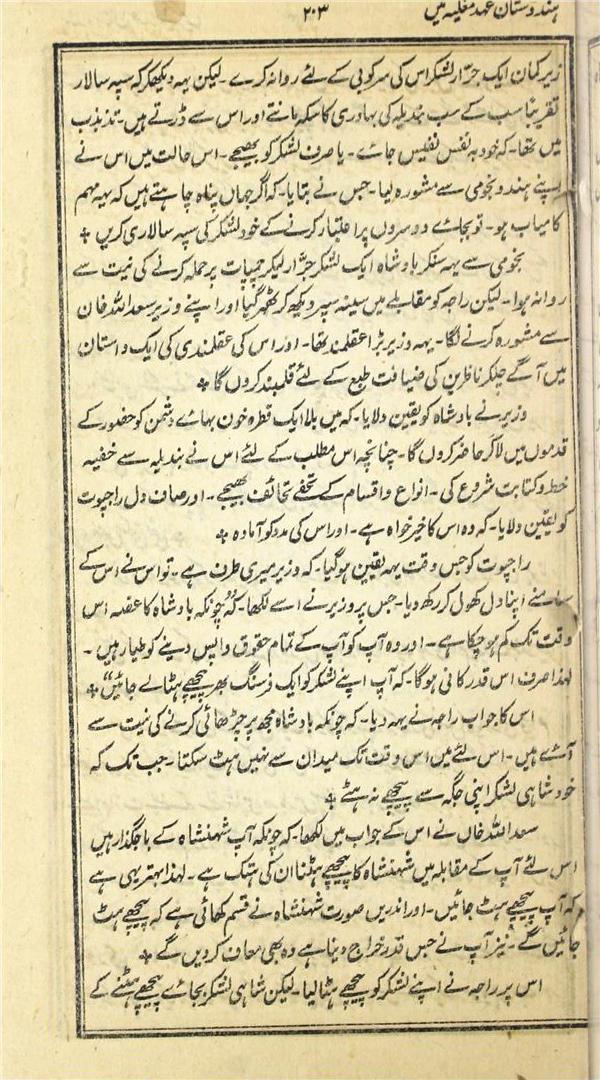 ہندوستان عہد مغلیہ میں ۲۰۳
زیر کمان ایک جرّار لشکر اس کی سرکوبی کے لئے روانہ کرے ۔ لیکن یہہ دیکھکر کہ سپہ سالار
تقریباً سب کے سب بندیلہ کی بہادری کا سکہ مانتے اور اس سے ڈرتے ہیں ۔ تذبذب
میں تھا ۔ کہ خود بہ نفس نفیس جاے ۔ یا صرف لشکر کو بھیجے ۔ اس حالت میں اس نے
اپنے ہندو نجومی سے مشورہ لیا ۔ جس نے بتایا ۔ کہ اگر جہاں پناہ چاہتے ہیں کہ یہہ مہم
کامیاب ہو ۔ تو بجاے دوسروں پر اعتبار کرنے کے خود لشکر کی سپہ سالاری کریں ٭
نجومی سے یہہ سنکر بادشاہ ایک لشکر جرّار لیکر چمپات پر حملہ کرنے کی نیت سے
روانہ ہوا ۔ لیکن راجہ کو مقابلے میں سینہ سپر دیکھ کر ٹھہر گیا اور اپنے وزیر سعد اللہ خان
سے مشورہ کرنے لگا ۔ یہہ وزیر بڑا عقلمند تھا ۔ اور اس کی عقلمندی کی ایک داستان
میں آگے چلکر ناظرین کی ضیافت طبع کے لئے قلمبند کروں گا ٭
وزیر نے بادشاہ کو یقین دلایا ۔ کہ میں بلا ایک قطرہ خون بہاے دشمن کو حضور کے
قدموں میں لا کر حاضر کروں گا ۔ چنانچہ اس مطلب کے لئے اس نے بندیلہ سے خفیہ
خط و کتابت شروع کی ۔ انواع و اقسام کے تحفے تحائف بھیجے ۔ اور صاف دل راجپوت
کو یقین دلایا ۔ کہ وہ اس کا خیر خواہ ہے ۔ اور اس کی مدد کو آمادہ ٭
راجپوت کو جس وقت یہہ یقین ہو گیا ۔ کہ وزیر میری طرف ہے ۔ تو اس نے اس کے
سامنے اپنا دل کھول کر رکھ دیا ۔ جس پر وزیر نے اسے لکھا ۔ کہ "چونکہ بادشاہ کا غصہ اس
وقت تک کم ہو چکا ہے ۔ اور وہ آپ کو آپ کے تمام حقوق واپس دینے کو طیار ہیں ۔
لہذا صرف اس قدر کافی ہوگا ۔ کہ آپ اپنے لشکر کو ایک فرسنگ بھر پیچھے ہٹا لے جائیں" ٭
اس کا جواب راجہ نے یہہ دیا ۔ کہ چونکہ بادشاہ مجھ پر چڑھائی کرنے کی نیت سے
آئے ہیں ۔ اس لئے میں اس وقت تک میدان سے نہیں ہٹ سکتا ۔ جب تک کہ
خود شاہی لشکر اپنی جگہ سے پیچھے نہ ہٹے ٭
سعد اللہ خاں نے اس کے جواب میں لکھا ۔ کہ چونکہ آپ شہنشاہ کے باجگذار ہیں
اس لئے آپ کے مقابلہ میں شہنشاہ کا پیچھے ہٹنا ان کی ہتک ہے ۔ لہذا بہتر یہی ہے
کہ آپ پیچھے ہٹ جائیں ۔ اور اندریں صورت شہنشاہ نے قسم کھائی ہے کہ پیچھے ہٹ
جائیں گے ۔ نیز آپ نے جس قدر خراج دینا ہے وہ بھی معاف کر دیں گے ٭
اس پر راجہ نے اپنے لشکر کو پیچھے ہٹا لیا ۔ لیکن شاہی لشکر بجاے پیچھے ہٹنے کے